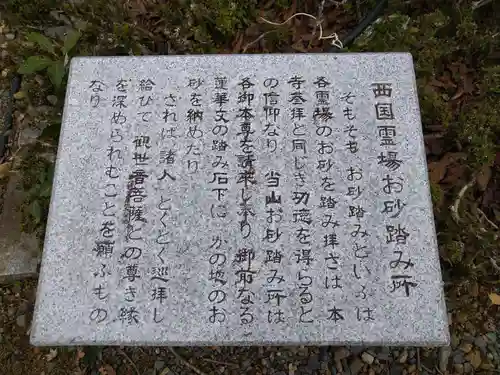 西国霊場お砂踏み所
そもそも お砂踏みといふは
各霊場のお砂を踏み拝さは 本
寺参拝と同じき功徳を得らると
の信仰なり 当山お砂踏み所は
各御本尊を請来し奉り 御前なる
蓮華文の踏み石下に かの地のお
砂を納めたり
されば 諸人 とくとく巡拝し
給ひて 観世音菩薩との尊き縁
を深められむことを願ふもの
なり